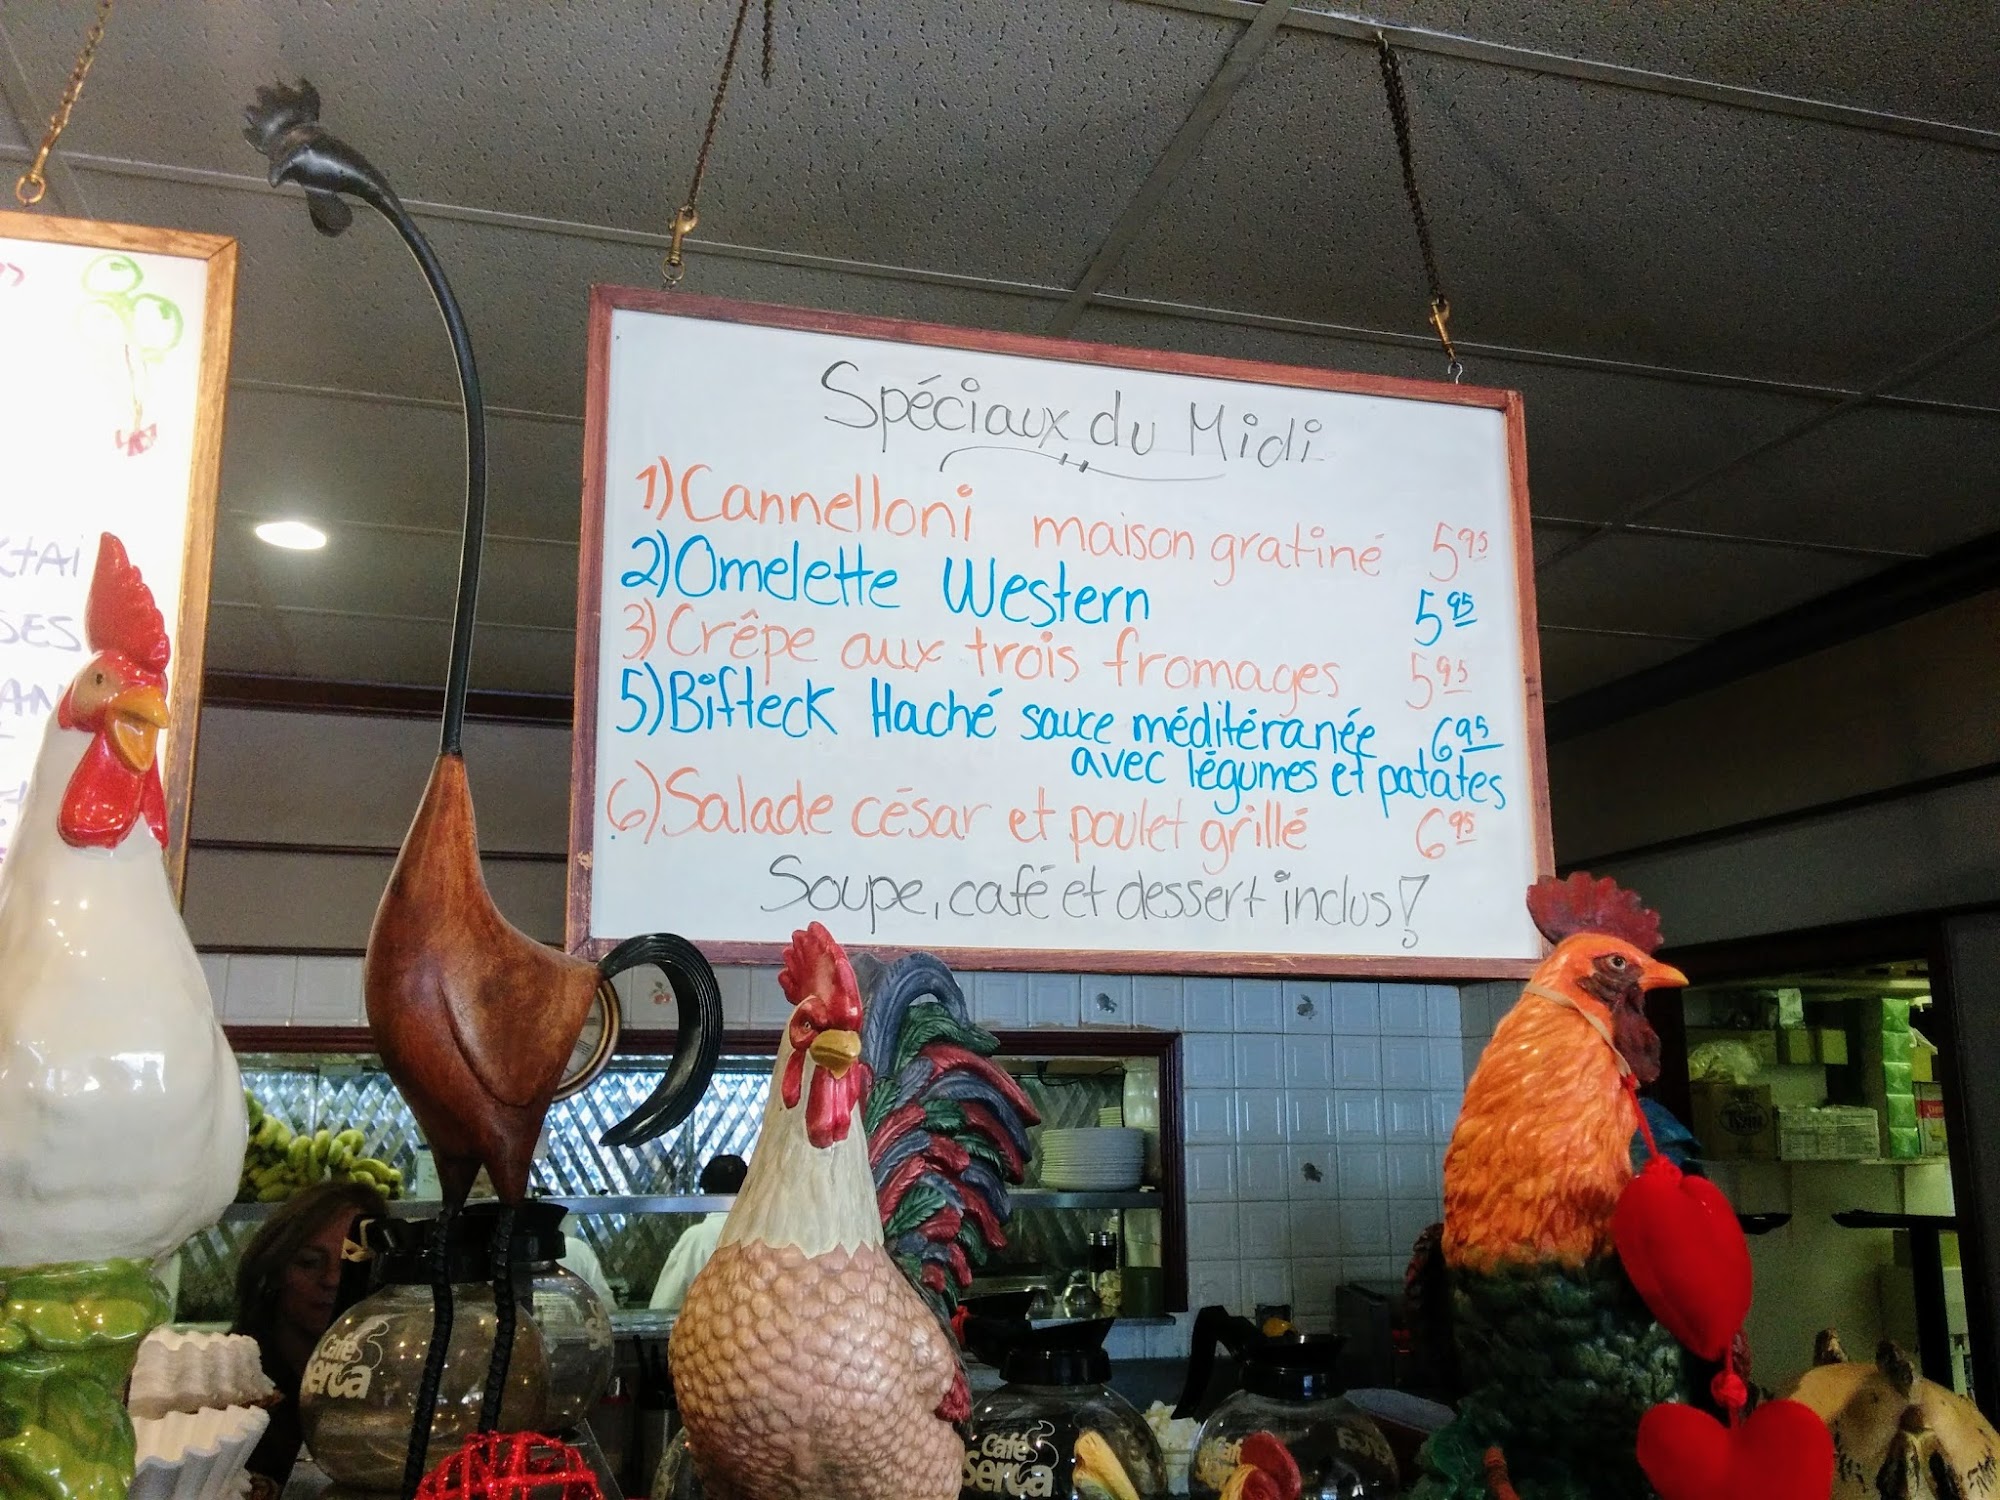 Spéciaux du Midi
1) Cannelloni maison gratiné 5 95
2) Omelette Western 5 95
3) Crêpe aux trois fromages 5 95
5) Bifteck Haché sauce méditéranée 6 95
avec légumes et patates
6) Salade césar et poulet grillé 6 95
Soupe, café et dessert inclus!
Café
Serca
Café
Serca